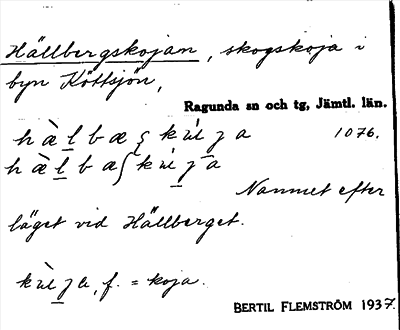 Hällbergskojan, skogskoja i
byn Köttsjön,
Ragunda sn och tg, Jämtl. län.
1076.
Namnet efter
läget vid Hällberget.
f. = koja.
BERTIL FLEMSTRÖM 1937.